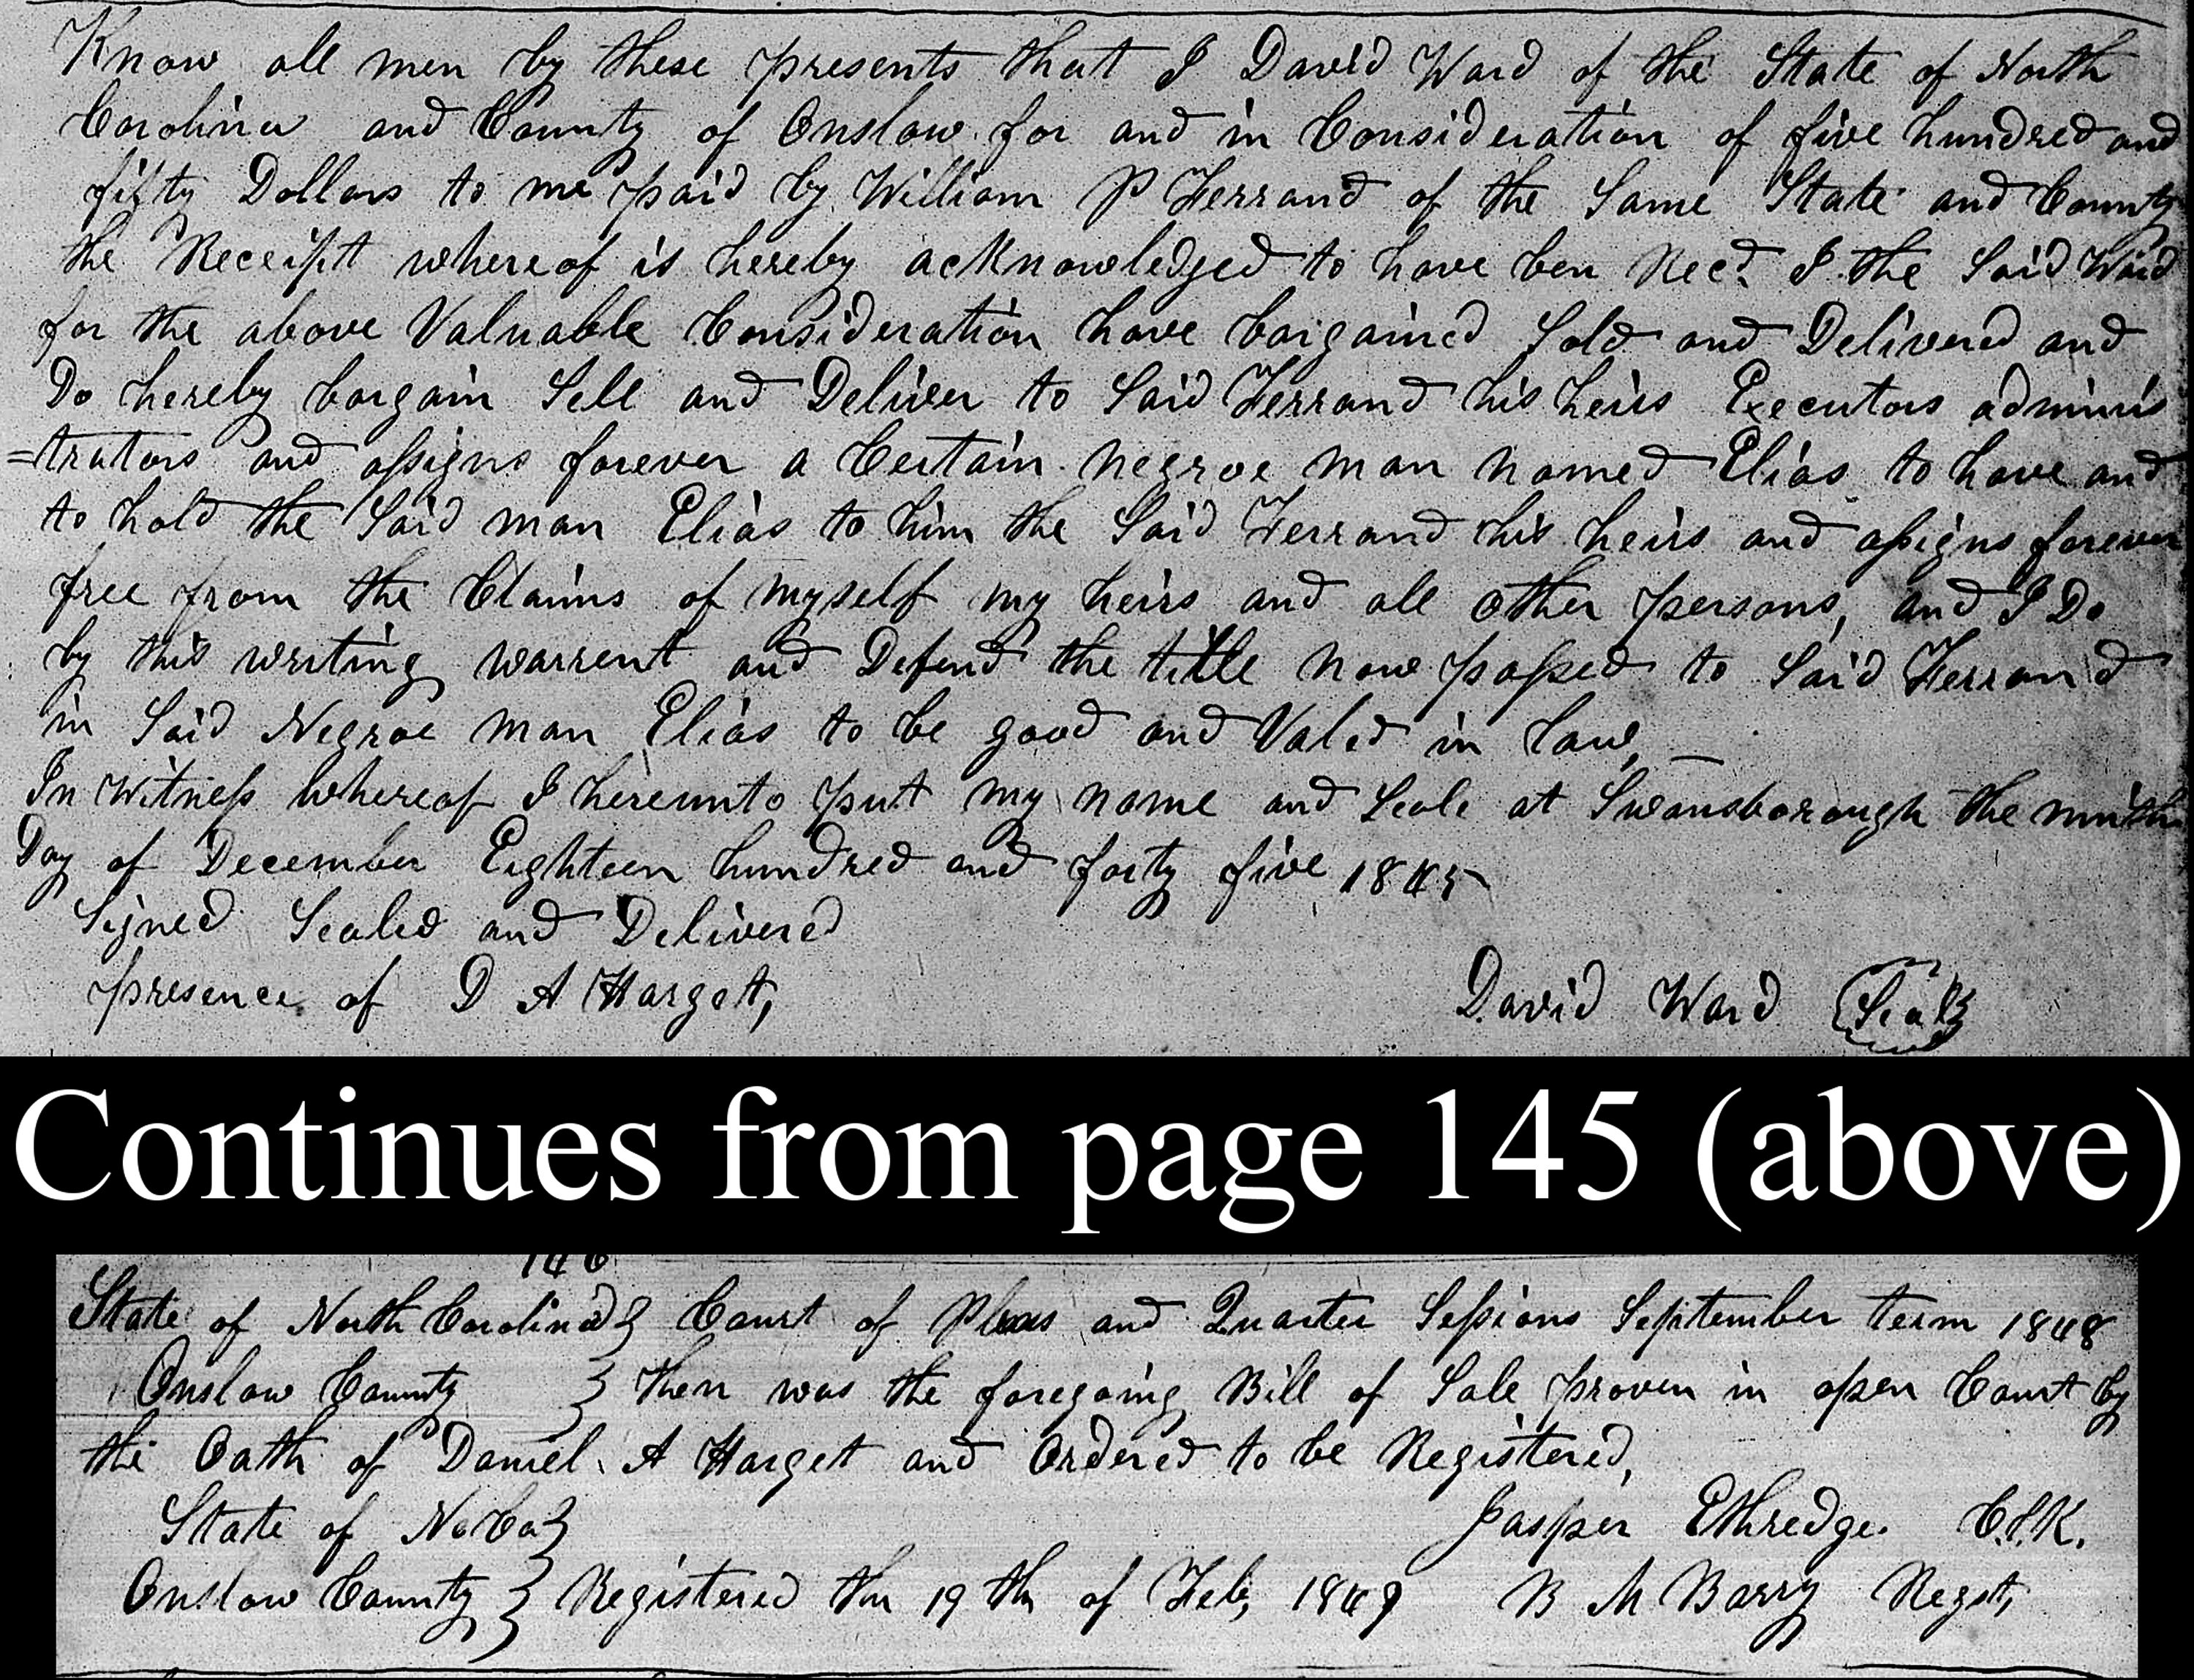 Know all men by these presents that I David Ward of the State of North
Carolina and County of Onslow for and in Consideration of five hundred and
fifty Dollars to me paid by William P Ferrand of the Same State and County
the Receiptt whereof is hereby acknowledged to have ben Recd I the Said Ward
for the above Valuable Consideration have bargained Sold and Delivered and
Do hereby bargain Sell and Deliver to Said Ferrand his heirs Executors adminis
=trators and assigns forever a Certain negroe man named Elias to have and
to hold the Said man Elias to him the Said Ferrand his heirs and assigns forever
free from the Claims of myself my heirs and all other persons, and I Do
by this writing warrent and Defend the title now passed to Said Ferrand
in Said Negroe man Elias to be good and Valed in law,
In Witness whereof I hereunto put my name and Seale at Swansborough the ninth
Day of December Eighteen hundred and forty five 1845
Signed Sealed and Delivered
presence of D A Harget,
David Ward (Seal)
Continues from page 145 (above)
146
State of North Carolina } Court of Pleas and Quarter Sessions September term 1848
Onslow County } then was the foregoing Bill of Sale proven in open Court by
the Oath of Daniel A Harget and Ordered to be Registered,
State of No Ca } Jasper Ethredge. C.l.K.
Onslow County } Registered the 19 th of Feb, 1849 B M Barry Regst,